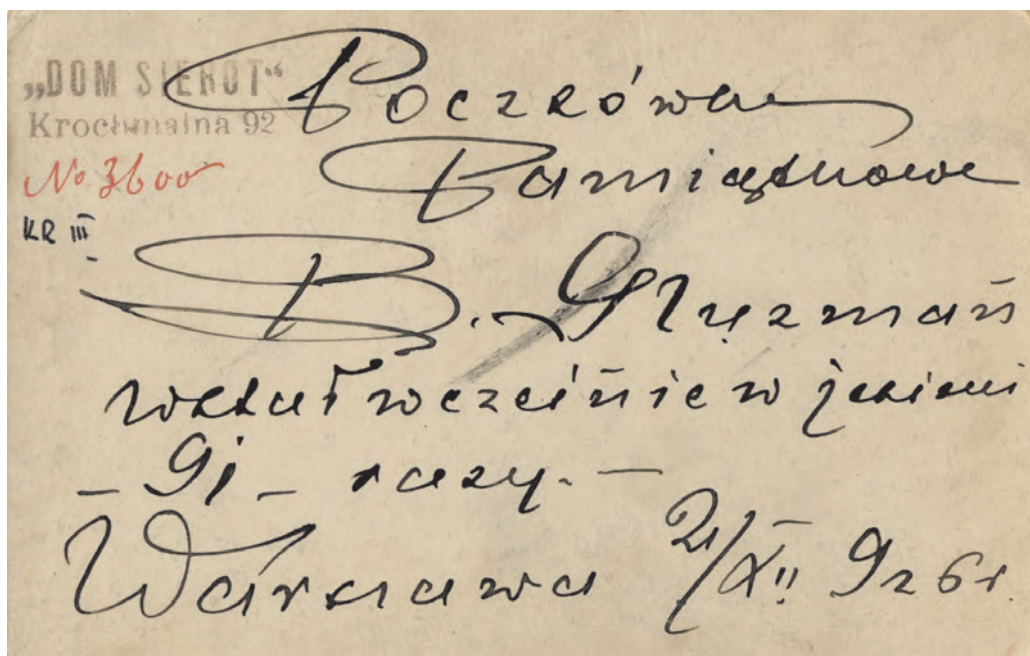 „DOM SIEROT“
Krochmalna 92
No 3600
KR III
Pocztówka
Pamiątkowa
B. Gluzman
wstał wcześnie w jesieni
– 91 – razy. –
Warszawa 21/XII 926 r.